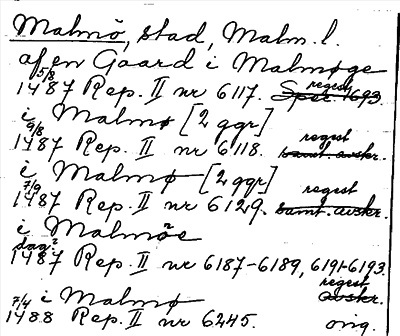 Malmö, stad, Malm. l.
af en Gaard i Malmøge
5/8 regest
1487 Rep. II nr 6117. Sper. 1693
i Malmø [2 ggr]
9/8 regest
1487 Rep. II nr 6118. samt. avskr.
i Malmø [2 ggr]
7/9 regest
1487 Rep. II nr 6129. samt. avskr.
i Malmöe
dag?
1487 Rep. II nr 6187-6189, 6191-6193.
regest
i Malmø avskr.
7/4
1488 Rep. II nr 6245. orig.